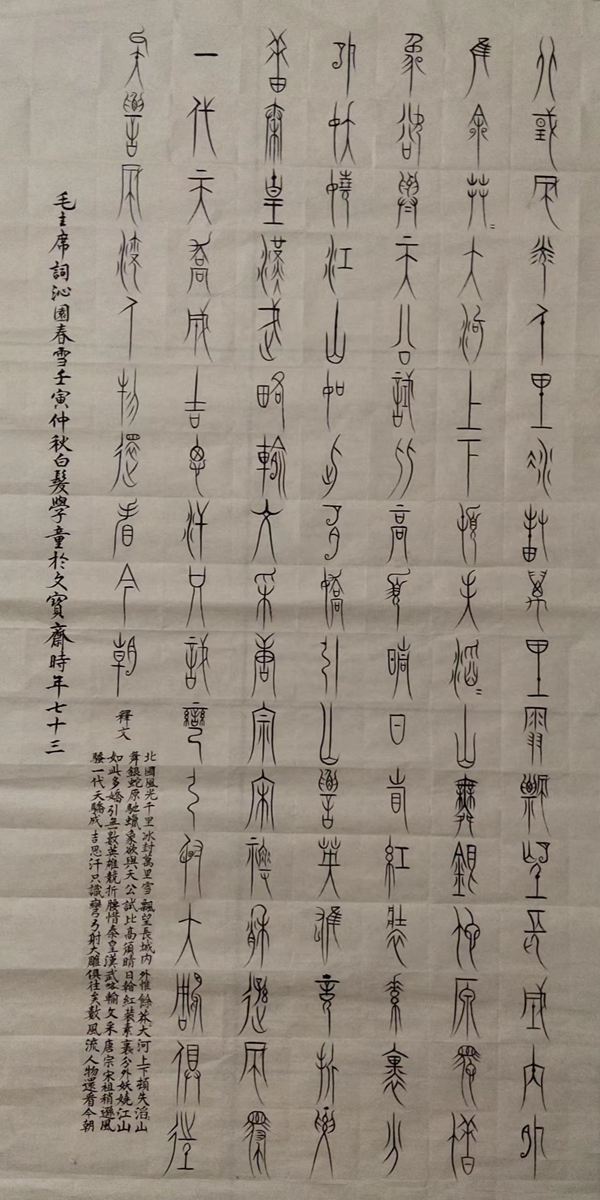 北或風光千里冰封萬里雪飄望長城內外
隹余莽=大河上下頓失滔=山舞銀蛇原馳蜡
象欲與天公試比高須晴日看紅裝素裹分
外妖嬈江山如此多嬌引無數英雄競折腰
惜秦皇漢武略輸文采唐宗宋祖稍遜風騷
一代天驕成吉思汗只識彎弓射大雕俱往
矣數風流人物還看今朝
釋文
北國風光千里冰封萬里雪飄望長城內外惟餘莽大河上下頓失滔山
舞銀蛇原馳蠟象欲與天公試比高須晴日看紅裝素裹分外妖嬈江山
如此多嬌引无數英雄競折腰惜秦皇漢武略輸文采唐宗宋祖稍遜風
騷一代天驕成吉思汗只識彎弓射大雕俱往矣數風流人物還看今朝
毛主席詞沁園春雪壬寅仲秋白髮學童於文寶齋時年七十三